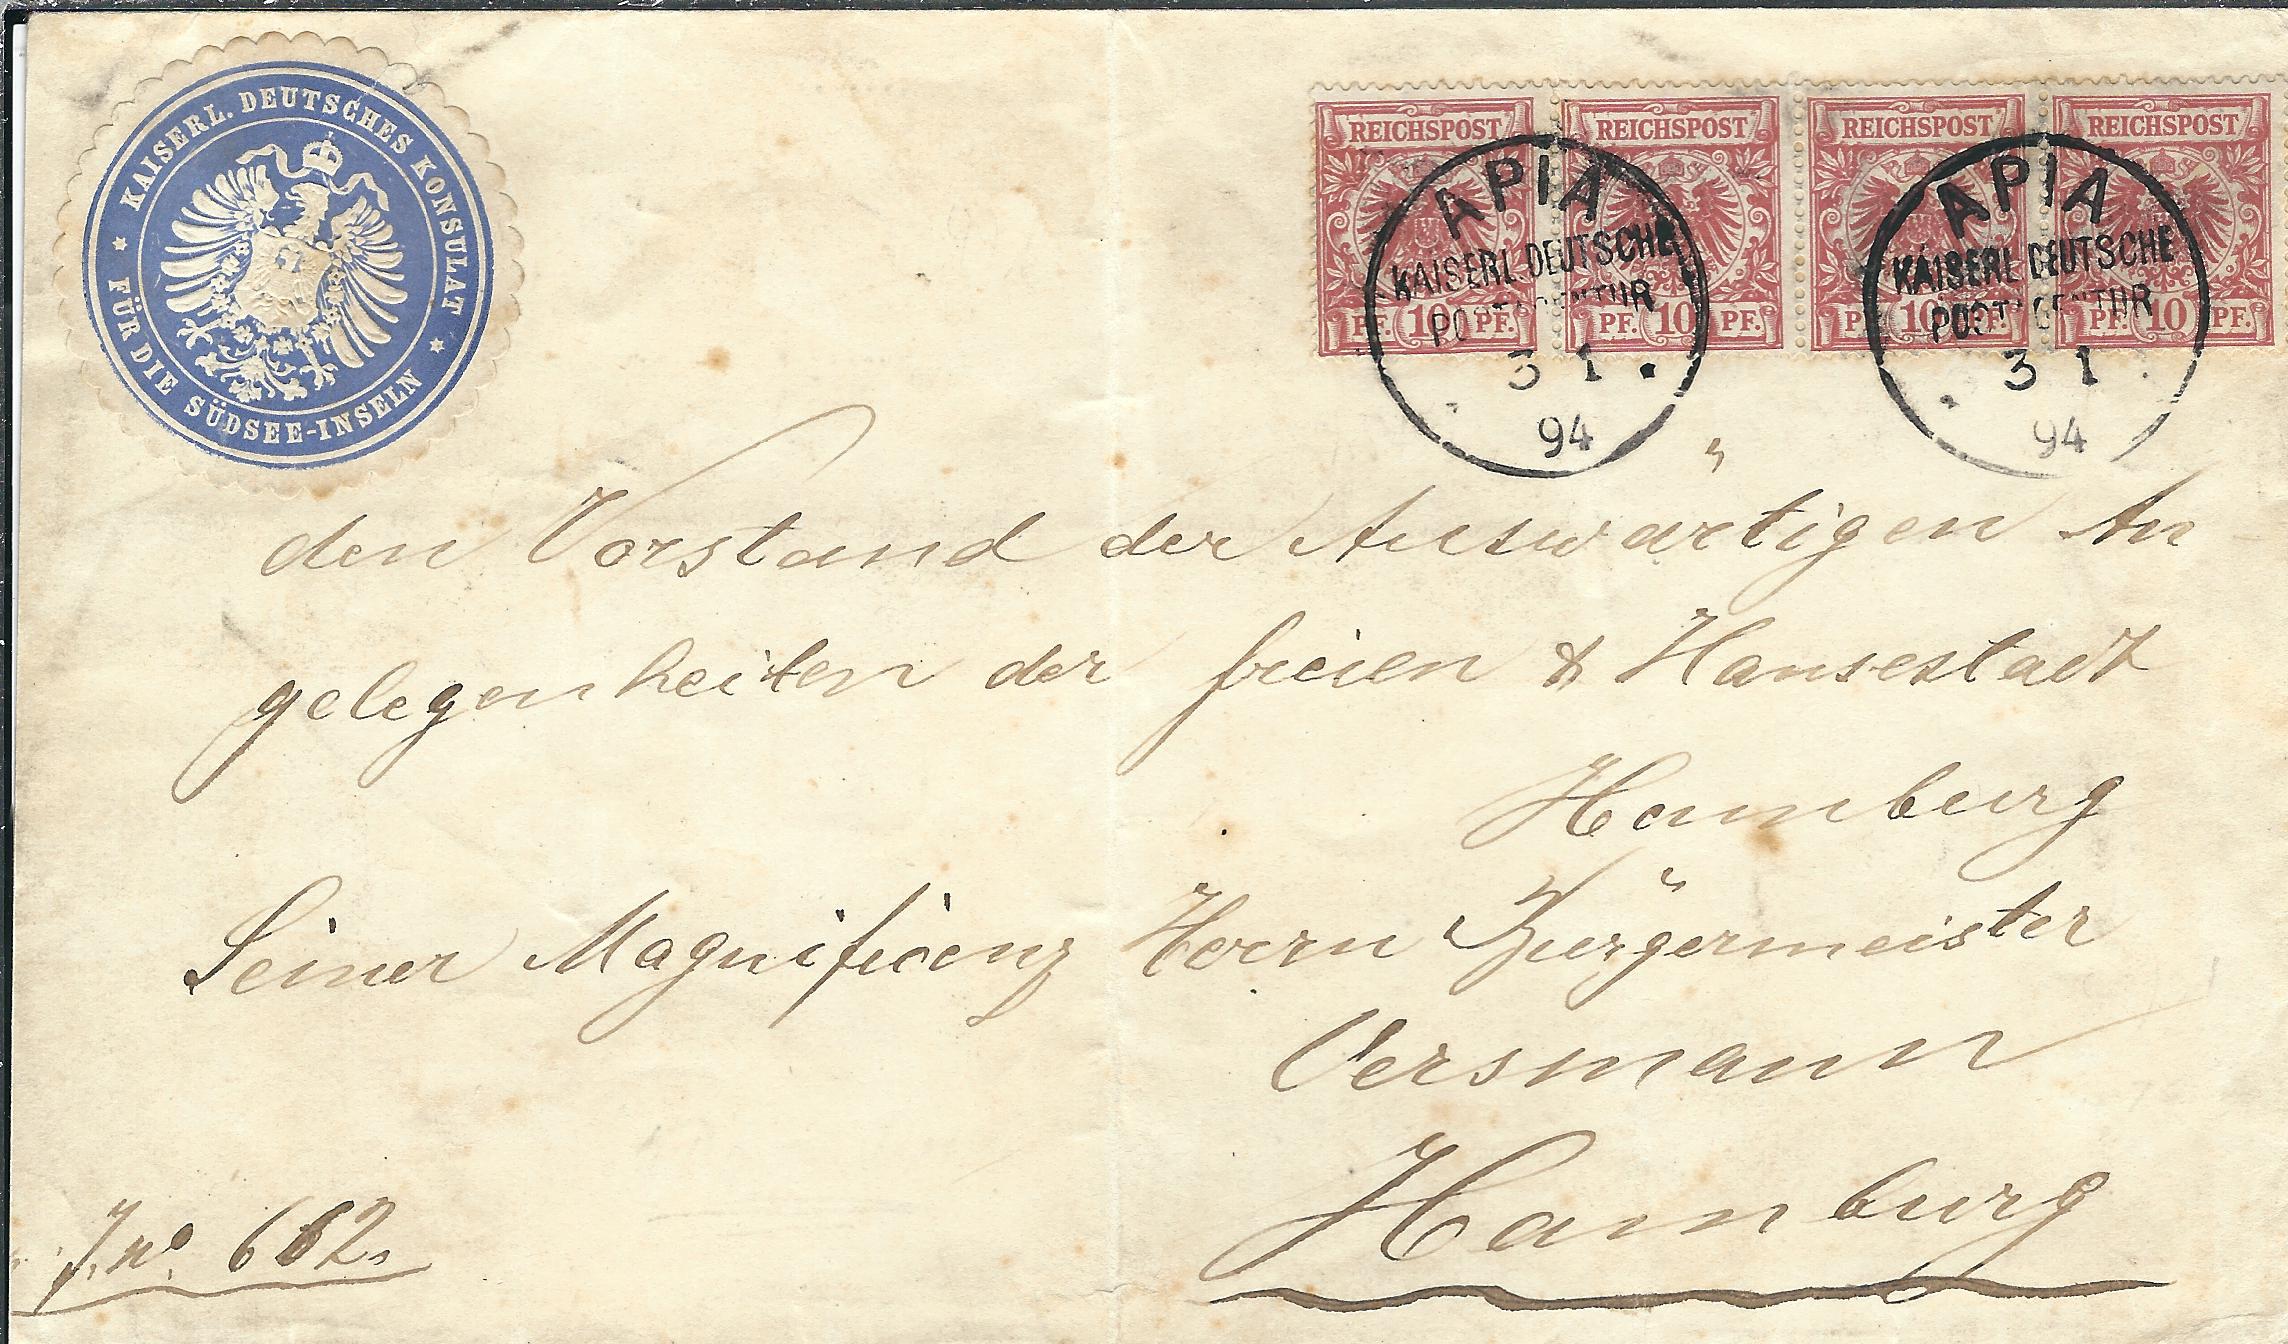 KAISERL. DEUTSCHES KONSULAT
* FÜR DIE SÜDSEE-INSELN *
REICHSPOST REICHSPOST REICHSPOST REICHSPOST
PF. 10 PF. PF. 10 PF. PF. 10 PF. PF. 10 PF.
APIA
KAISERL. DEUTSCHE
POSTAGENTUR
3 1
94
APIA
KAISERL. DEUTSCHE
POSTAGENTUR
3 1
94
den Vorstand der Auswärtigen An-
gelegenheiten der freien & Hansestadt
Hamburg
Seiner Magnificenz Herrn Bürgermeister
Versmann
Hamburg
J. no. 662.